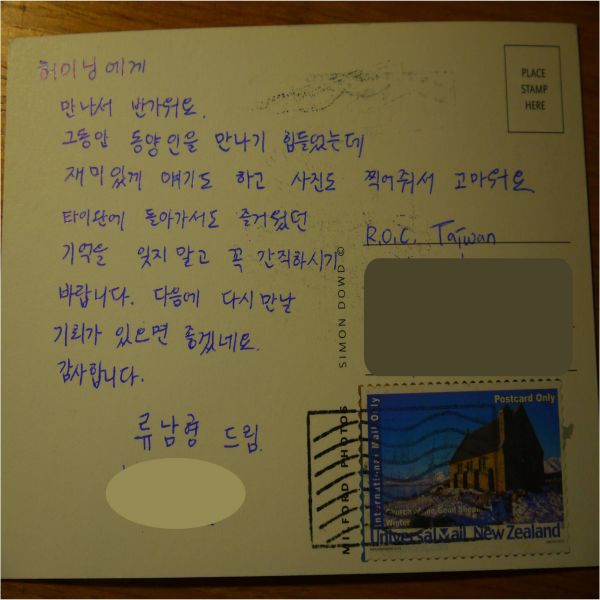 허이닝에게
만나서 반가워요.
그동안 동양인을 만나기 힘들었는데
재미있게 얘기도 하고 사진도 찍어줘서 고마워요
타이완에 돌아가서도 즐거웠던
기억을 잊지 말고 꼭 간직하시기
바랍니다. 다음에 다시 만날
기회가 있으면 좋겠네요.
감사합니다.
류남형 드림.
PLACE
STAMP
HERE
R.O.C. Taiwan
SIMON DOWD ©
MILFORD PHOTOS
Postcard Only
International Mail Only
Church of the Good Shepherd
Winter
UniversalMail New Zealand